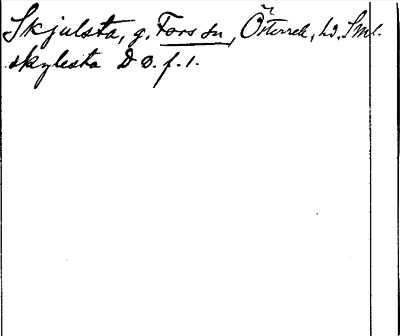 Skjulsta, g. Fors sn, Österrek, hd. Sml.
skylesta D D. f. 1.